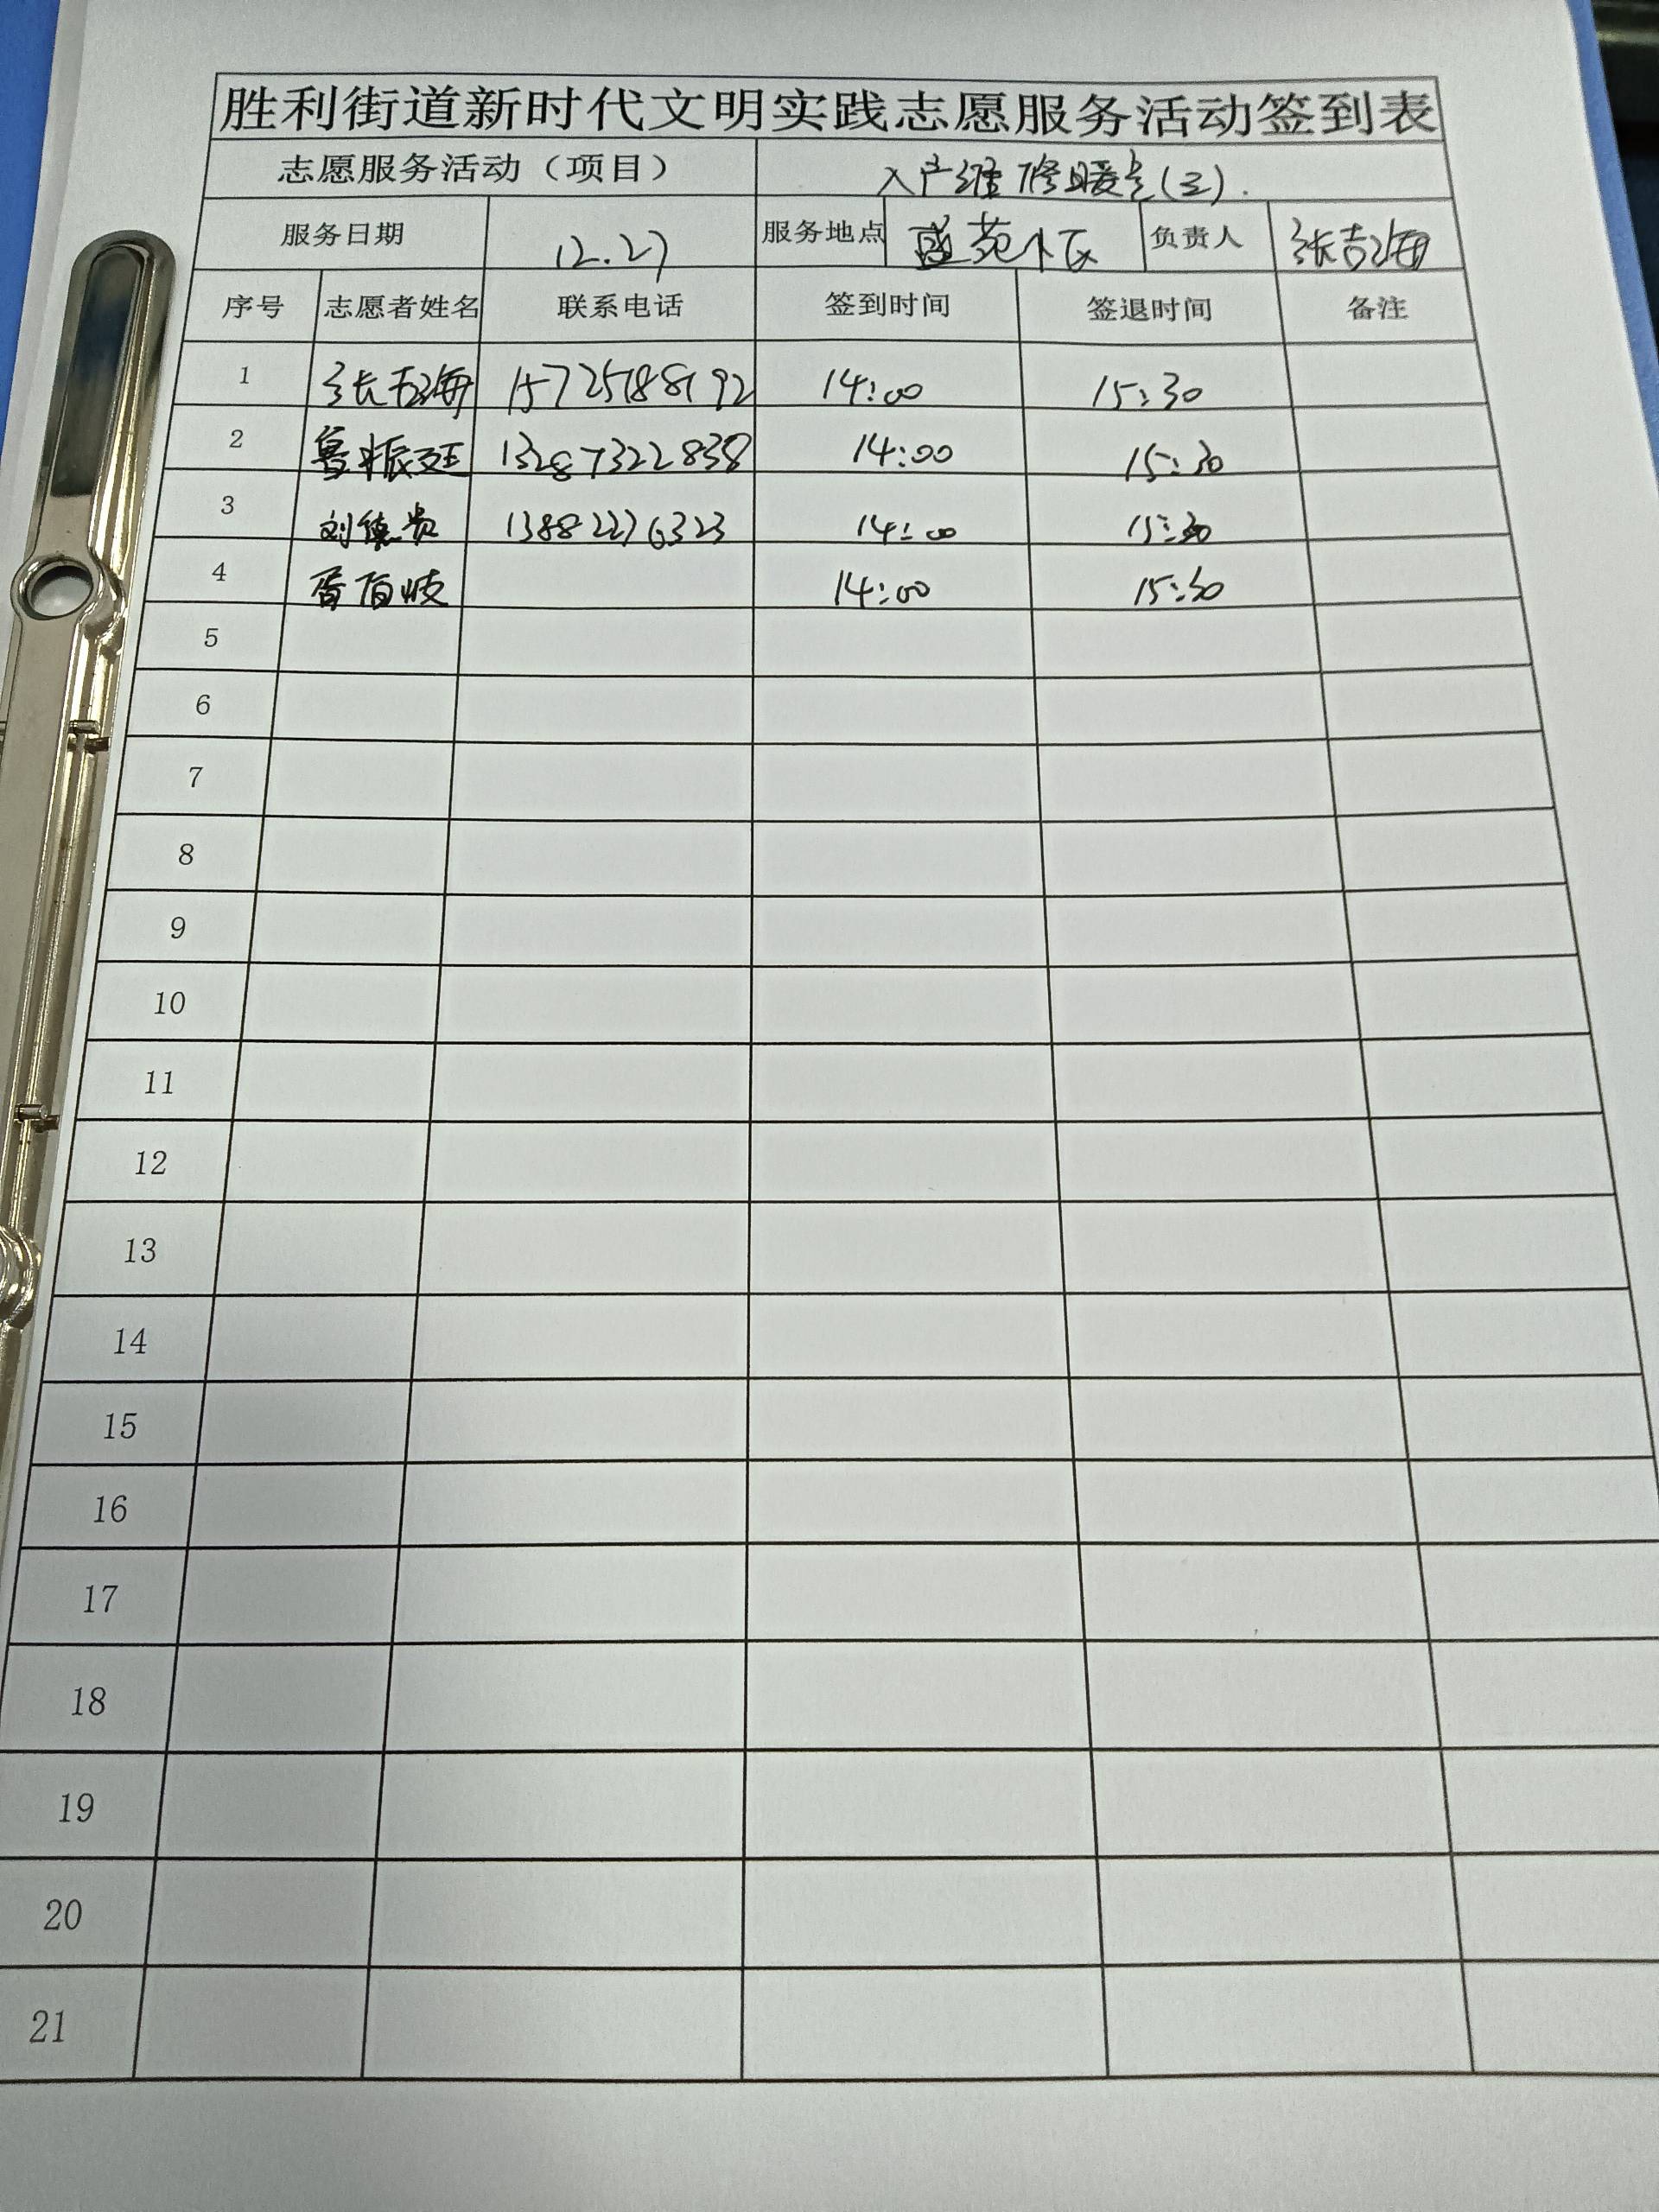 胜利街道新时代文明实践志愿服务活动签到表
志愿服务活动（项目） 入户维修暖气(三).
服务日期 12.27 服务地点 盛苑小区 负责人 张吉海
序号 志愿者姓名 联系电话 签到时间 签退时间 备注
1 张吉海 15725188192 14:00 15:30
2 鲁振廷 13287322838 14:00 15:30
3 刘德贵 13882276323 14:00 15:30
4 14:00 15:30
5
6
7
8
9
10
11
12
13
14
15
16
17
18
19
20
21